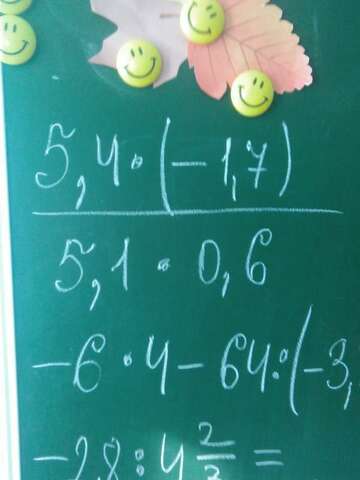 5,4·(-1,7)
5,1·0,6
-6·4-64:(-3,
-2,8:4 2/3 =